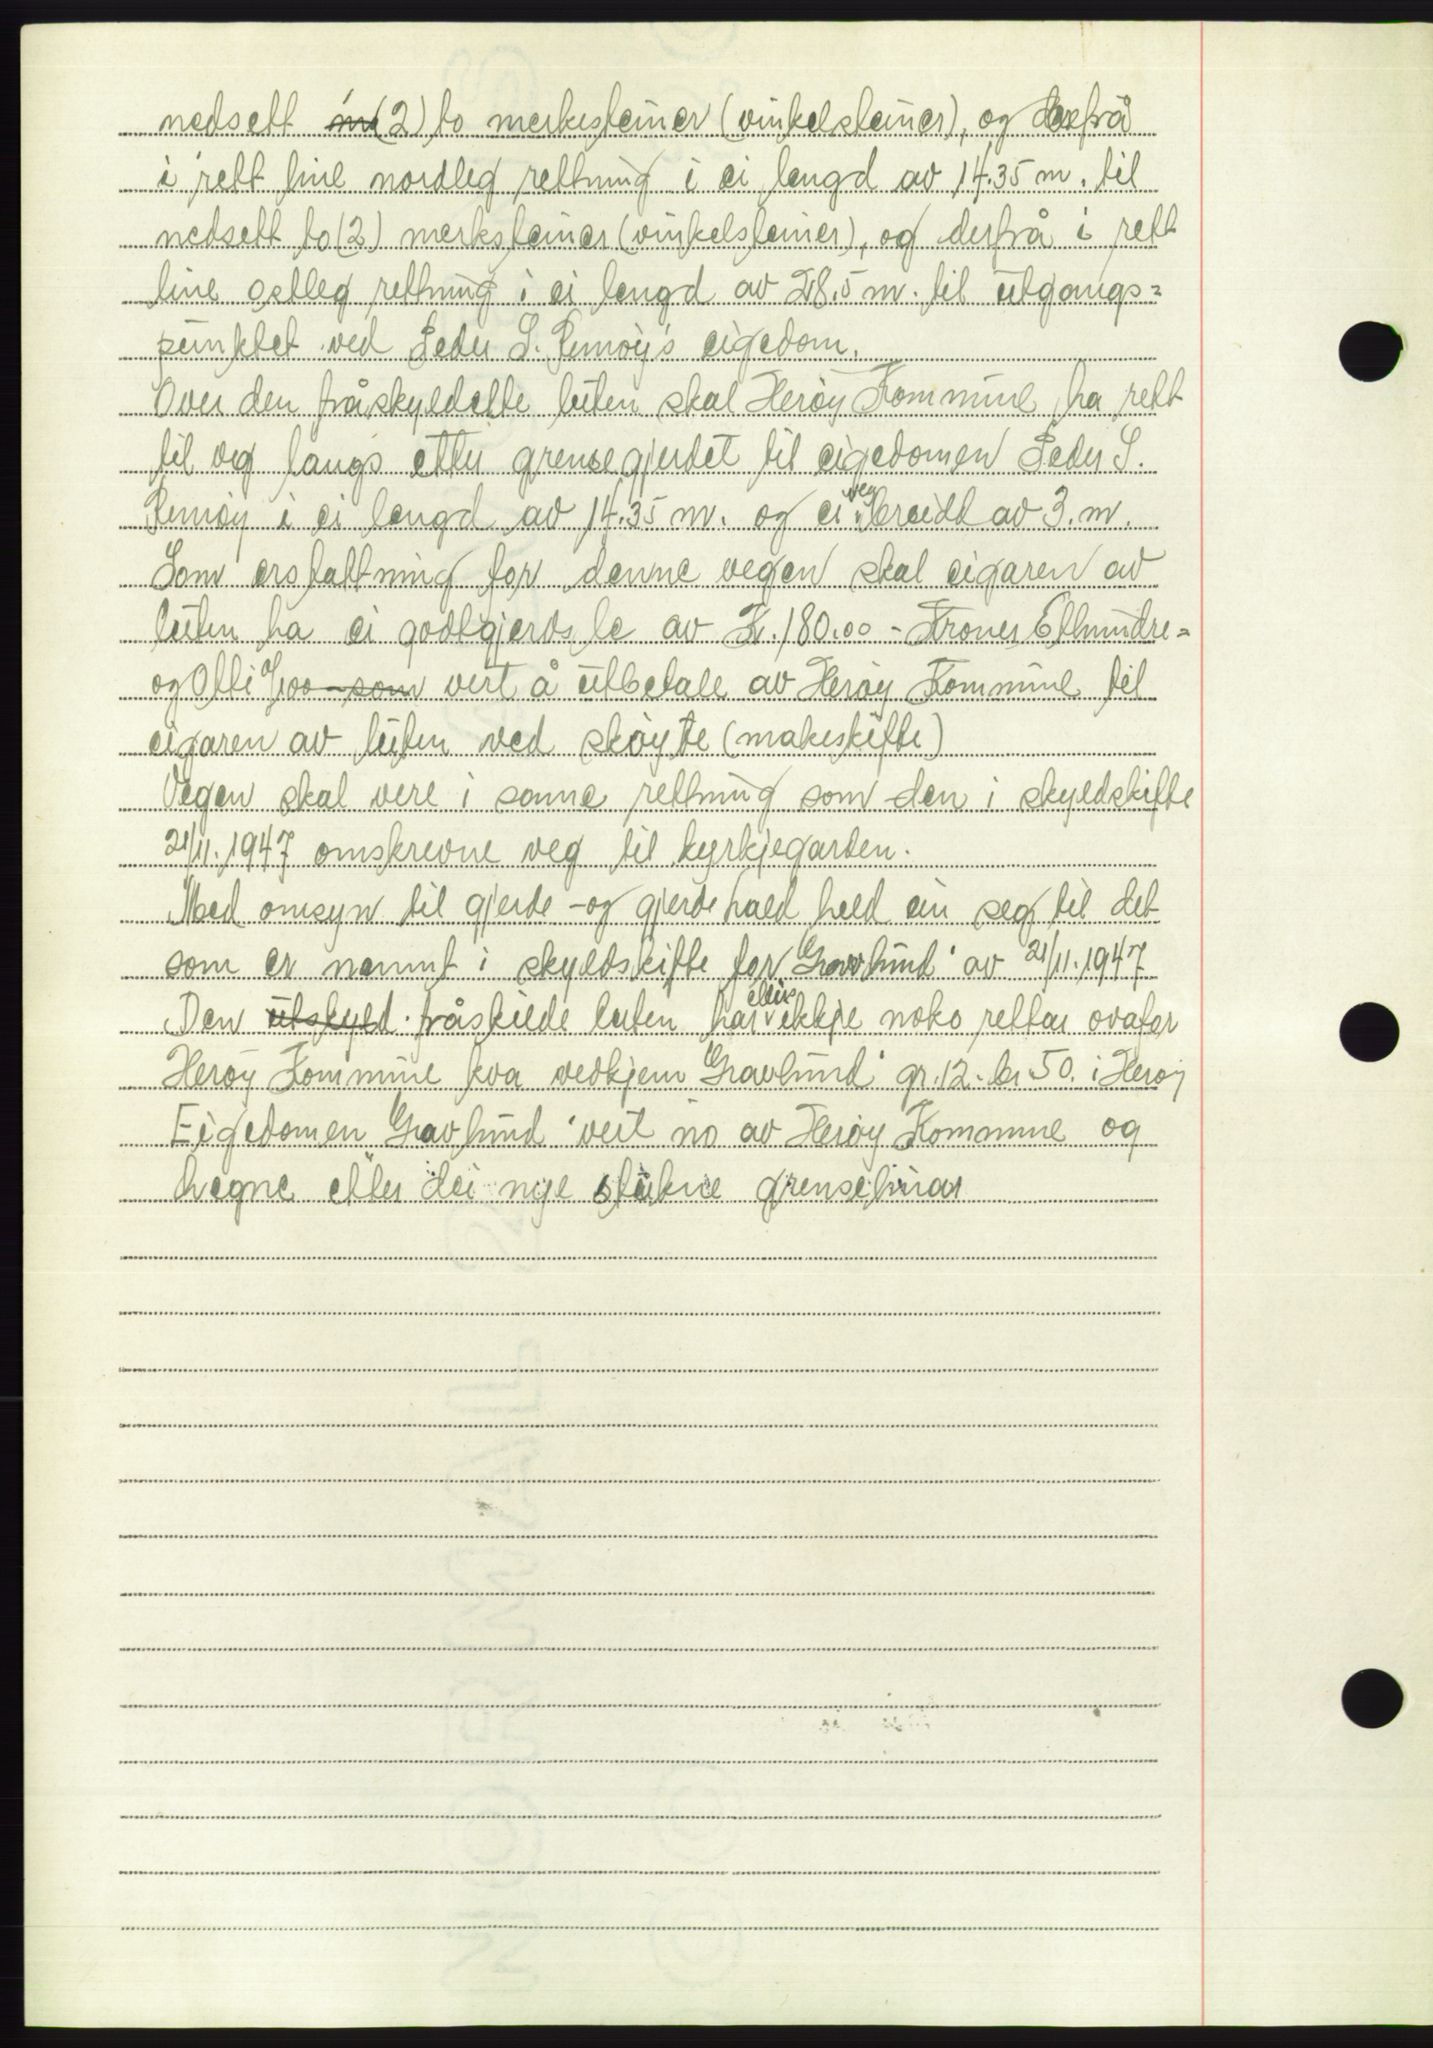 nedsett m (2) to merkesteiner (vinkelsteiner), og derfrå
i rett line nordleg rettning i ei lengd av 14.35 m. til
nedsett to (2) merksteiner (vinkelsteiner), og derfrå i rett
line ostleg rettning i ei lengd av 28.5 m. til utgangs=
punktet ved Peder S. Remøy's eigedom.
Over den fråskyldette luten skal Herøy Kommune ha rett
til veg langs etter grensegjerdet til eigedomen Peder S.
Remøy i ei lengd av 14.35 m. og ei veg breidd av 3. m.
Som erstattning for denne vegen skal eigaren av
luten ha ei godtgjerdsle av Kr. 180.00 - Kroner Etthundre=
og Otti 0/100 - som vert å utbetale av Herøy Kommune til
eigaren av luten ved skøyte (makeskifte)
Vegen skal vere i same rettning som den i skyldskifte
21/11. 1947 omskrevne veg til kyrkjegarden.
Med omsyn til gjerde - og gjerdehald held ein seg til det
som er nemnt i skyldskifte for "Gravlund" av 21/11. 1947
Den utskyld. fråskilde luten har ellers ikkje noko rettar ovafor
Herøy Kommune kva vedkjem "Gravlund" gr. 12. br. 50. i Herøy
Eigedomen "Gravlund" vert no av Herøy Kommune og
hegne etter dei nye stukne grenselinar